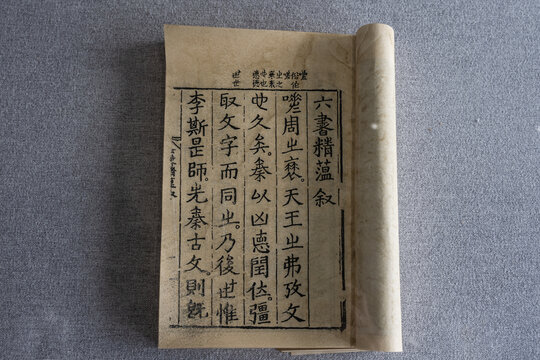 六書精蘊叙
嘑周㞢衰。天王㞢弗攷文
也久矣。秦以凶悳閏位。彊
取文字而同㞢。乃後世惟
李斯是師。先秦古文。則旣